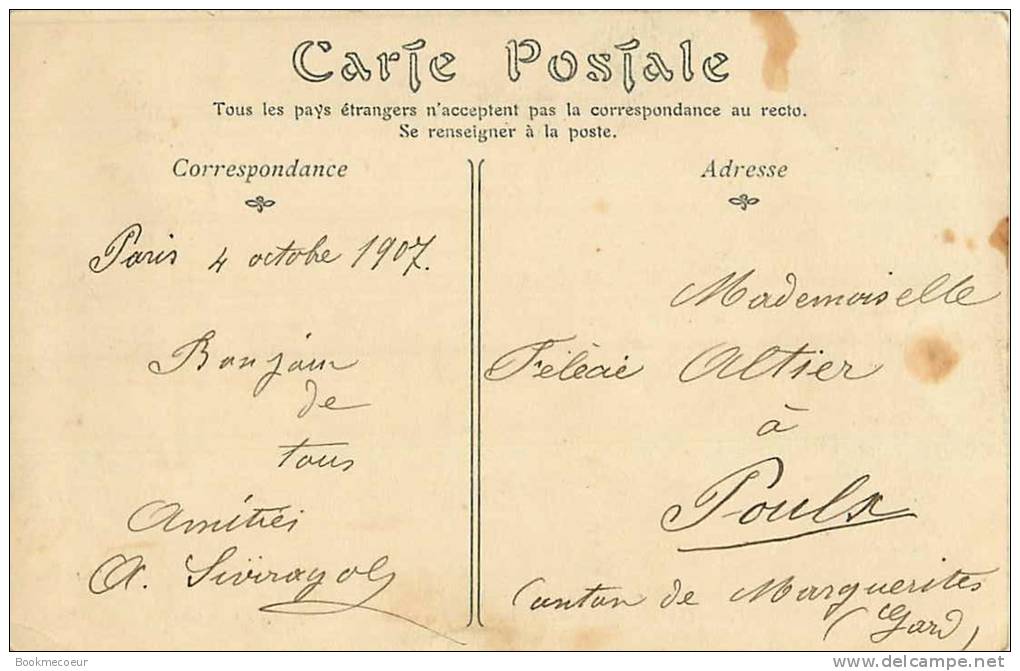 Carte Postale
Tous les pays étrangers n'acceptent pas la correspondance au recto.
Se renseigner à la poste.
Correspondance
Paris 4 octobre 1907.
Bonjour
de
tous
Amitiés
A.
Adresse
Mademoiselle
Félécie Altier
à
Poulx
Canton de Marguerites
(Gard)
Bookmecoeur
delcampe.net